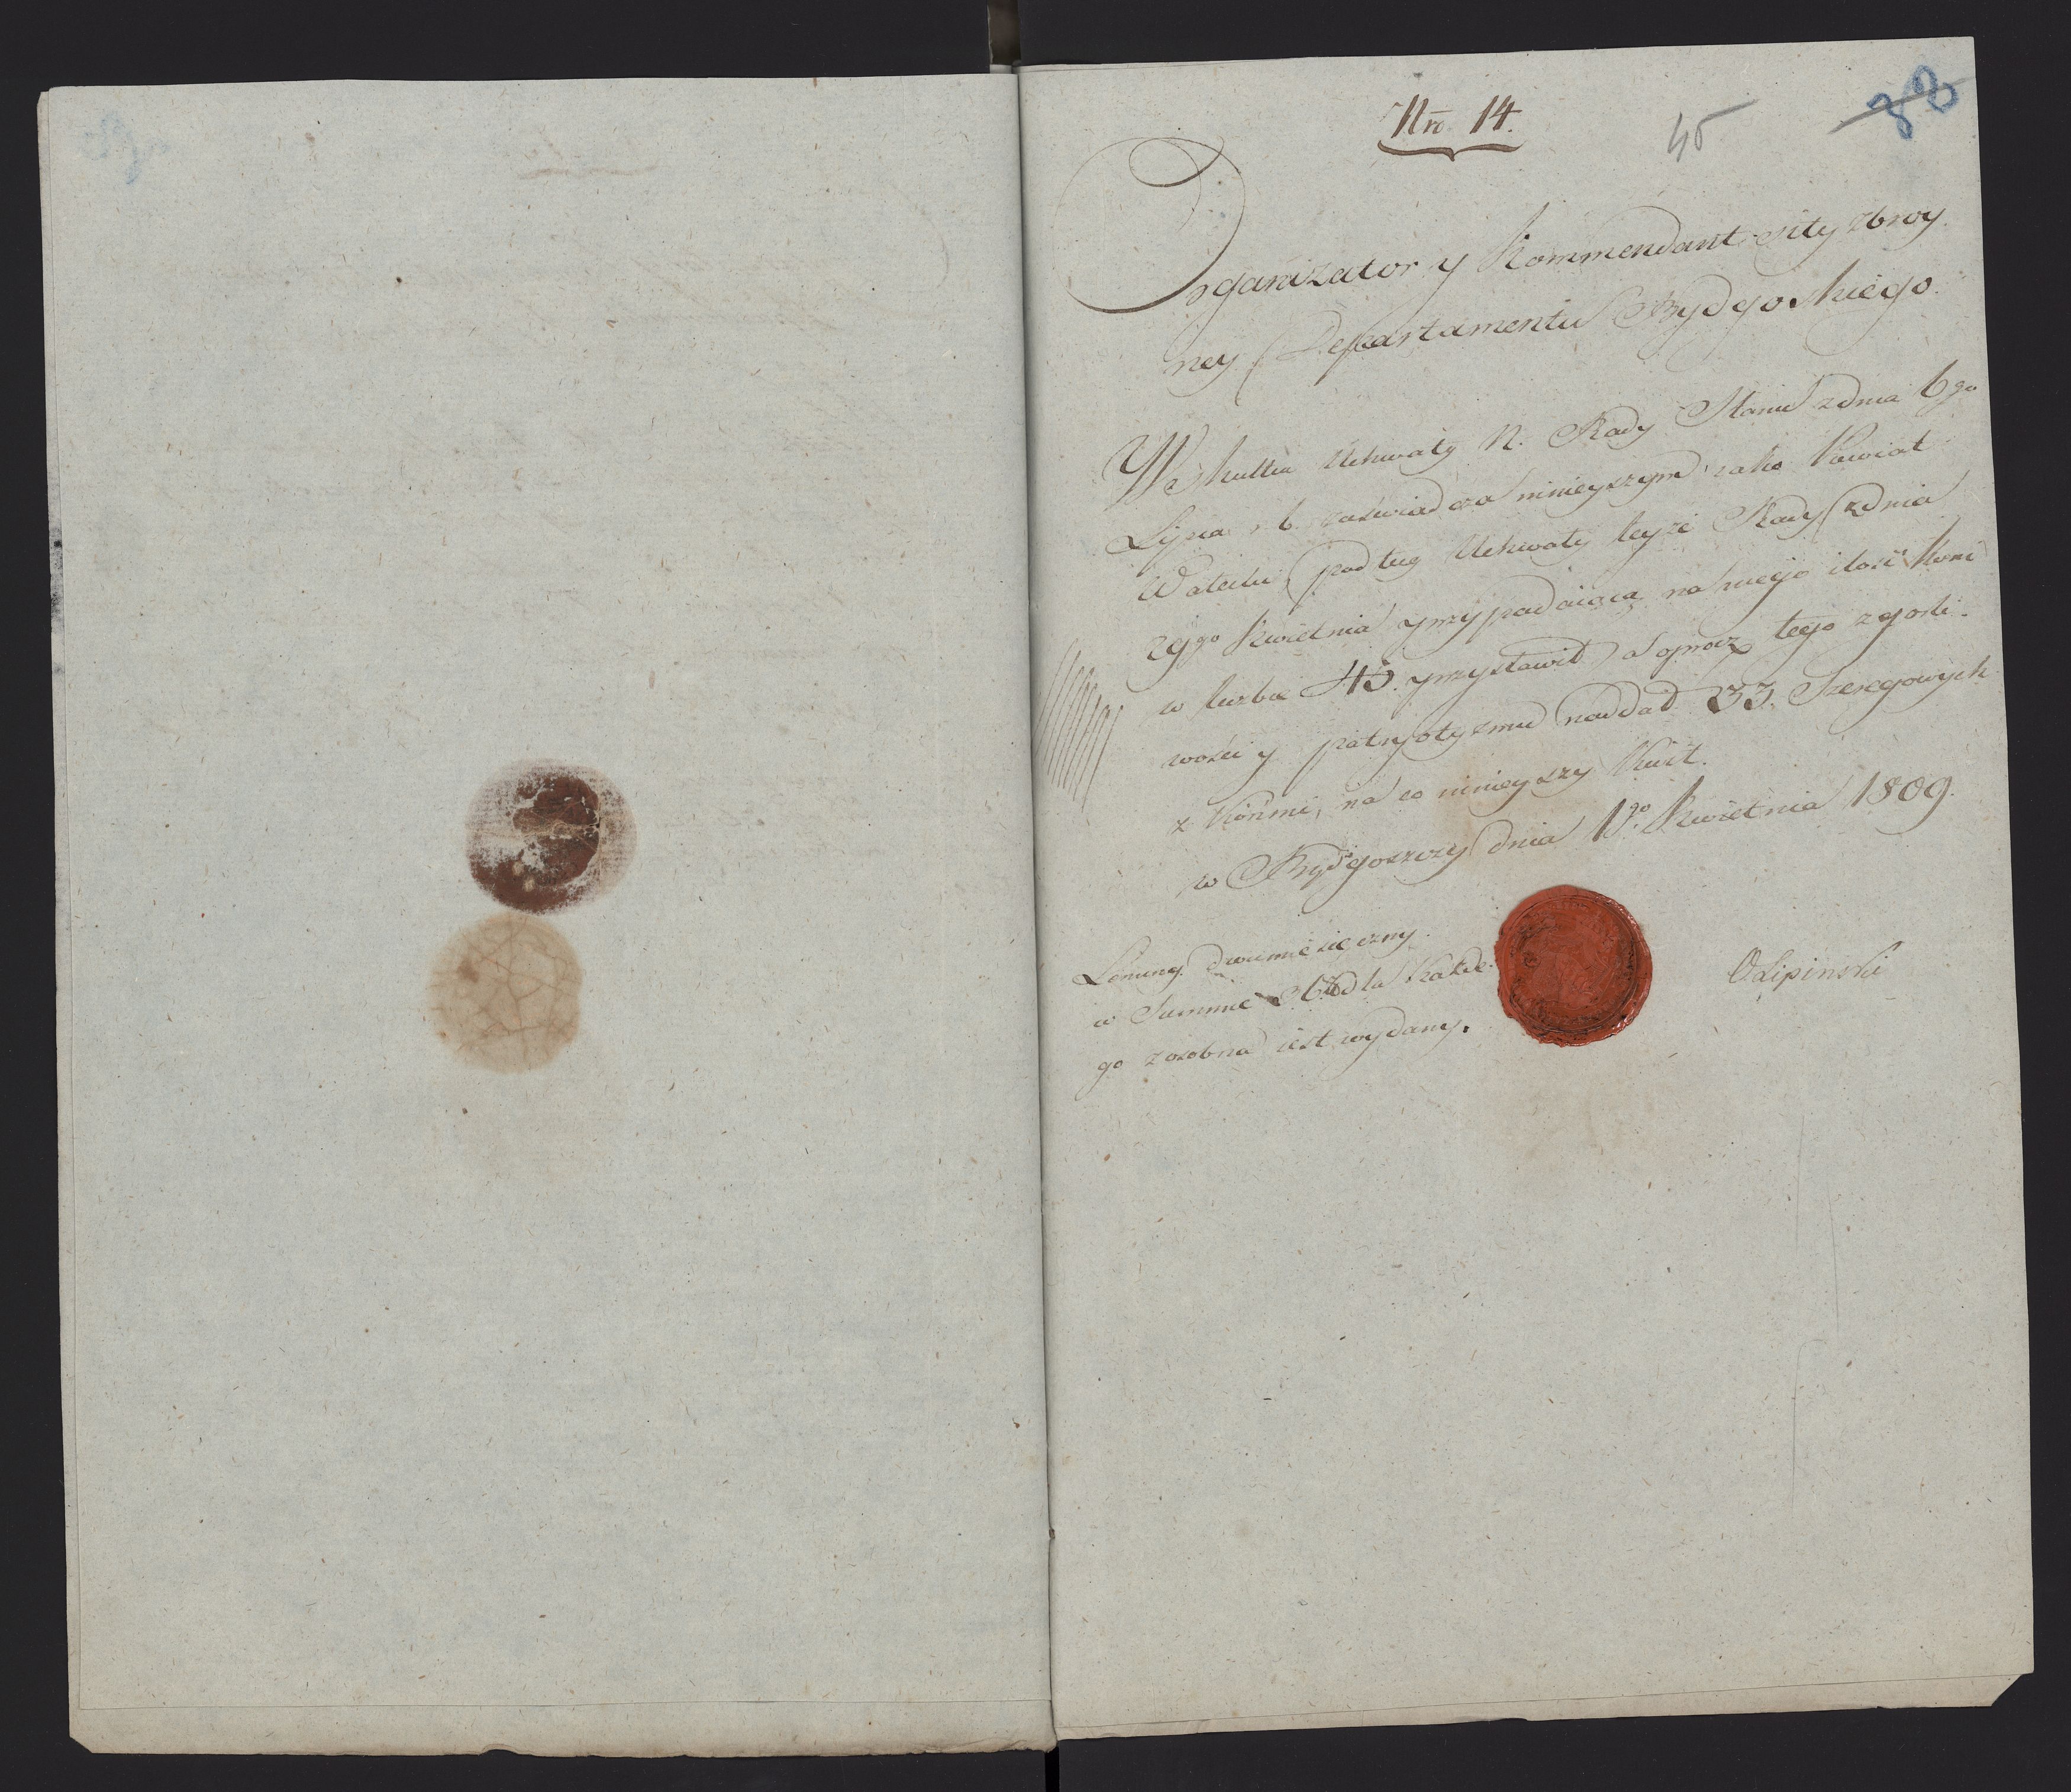 Nro 14.
45
88
Organizator y Kommendant siły zbroy
ney Departamentu Bydgoskiego.
We skutku Uchwały N. Rady Stanu z dnia 6go
Lipca r. b. zaświadcza ninieyszym iako Powiat
Wałecki podług Uchwały teyże Rady z dnia
29go Kwietnia przypadaiącą na niego ilość Koni
w liczbie 45. przystawił a oprocz tego z gorli-
wości y patryotyzmu naddał 33. Szeregowych
z Końmi, na co ninieyszy Kwit.
w Bydgoszczy dnia 1go Kwietnia 1809.
Lenung. dwumiesięczny.
w Summie dla Każde-
go z osobna iest wydany.
OLipinski